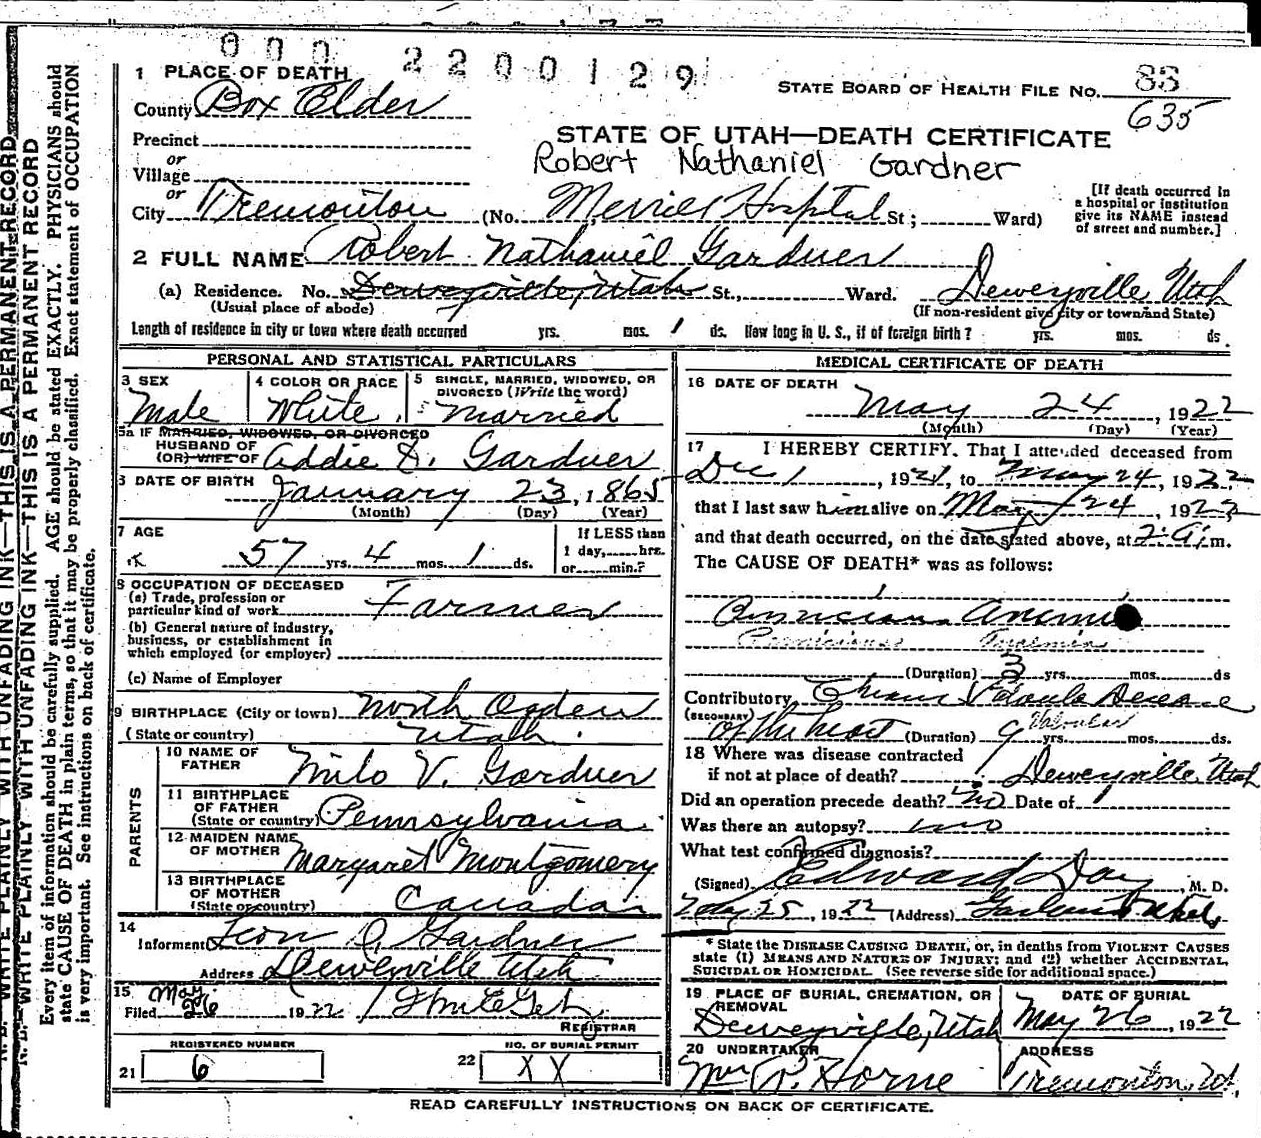 000 2200129
1 PLACE OF DEATH
STATE BOARD OF HEALTH FILE No. 83
County Box Elder
635
STATE OF UTAH—DEATH CERTIFICATE
Precinct
Robert Nathaniel Gardner
or
Village
or
City Tremonton (No. Merrill Hospital St; Ward)
[If death occurred in a hospital or institution give its NAME instead of street and number.]
2 FULL NAME Robert Nathaniel Gardner
(a) Residence. No. Deweyville, Utah St., Ward. Deweyville Utah
(Usual place of abode) (If non-resident give city or town and State)
Length of residence in city or town where death occurred yrs. mos. 1 ds. How long in U. S., if of foreign birth? yrs. mos. ds.
PERSONAL AND STATISTICAL PARTICULARS
3 SEX Male
4 COLOR OR RACE White
5 SINGLE, MARRIED, WIDOWED, OR DIVORCED (Write the word) Married
5a IF MARRIED, WIDOWED, OR DIVORCED
HUSBAND OF
(OR) WIFE OF Addie D. Gardner
DATE OF BIRTH January 23, 1865
(Month) (Day) (Year)
7 AGE 57 yrs. 4 mos. 1 ds.
If LESS than 1 day, hrs. or min.?
8 OCCUPATION OF DECEASED
(a) Trade, profession or particular kind of work Farmer
(b) General nature of industry, business, or establishment in which employed (or employer)
(c) Name of Employer
9 BIRTHPLACE (City or town) North Ogden
(State or country) Utah
PARENTS
10 NAME OF FATHER Milo V. Gardner
11 BIRTHPLACE OF FATHER (State or country) Pennsylvania
12 MAIDEN NAME OF MOTHER Margaret Montgomery
13 BIRTHPLACE OF MOTHER (State or country) Canada
14
Informent Leon D. Gardner
Address Deweyville Utah
15
Filed May 26 1922
REGISTRAR
REGISTERED NUMBER
21 6
NO. OF BURIAL PERMIT
22 XX
MEDICAL CERTIFICATE OF DEATH
16 DATE OF DEATH
May 24, 1922
(Month) (Day) (Year)
17 I HEREBY CERTIFY. That I attended deceased from
Dec 1, 1921, to May 24, 1922
that I last saw him alive on May 24, 1922
and that death occurred, on the date stated above, at 2 A. m.
The CAUSE OF DEATH* was as follows:
Pernicious Anemia
Pernicious Anaemia
(Duration) 3 yrs. mos. ds
Contributory Chronic Valvular Disease
(SECONDARY) of the heart (Duration) 9 yrs. mos. ds.
Valvular
18 Where was disease contracted
if not at place of death? Deweyville, Utah
Did an operation precede death? no Date of
Was there an autopsy? no
What test confirmed diagnosis?
(Signed) Edward Day, M. D.
May 25, 1922 (Address) Garland Utah
* State the DISEASE CAUSING DEATH, or, in deaths from VIOLENT CAUSES
state (1) MEANS AND NATURE OF INJURY; and (2) whether ACCIDENTAL,
SUICIDAL OR HOMICIDAL. (See reverse side for additional space.)
19 PLACE OF BURIAL, CREMATION, OR REMOVAL
Deweyville, Utah
DATE OF BURIAL
May 26, 1922
20 UNDERTAKER
Wm R. Horne
ADDRESS
Tremonton, Ut.
READ CAREFULLY INSTRUCTIONS ON BACK OF CERTIFICATE.
N. B. WRITE PLAINLY WITH UNFADING INK—THIS IS A PERMANENT RECORD
N. B. WRITE PLAINLY WITH UNFADING INK—THIS IS A PERMANENT RECORD
Every item of information should be carefully supplied. AGE should be stated EXACTLY. PHYSICIANS should
state CAUSE OF DEATH in plain terms, so that it may be properly classified. Exact statement of OCCUPATION
is very important. See instructions on back of certificate.